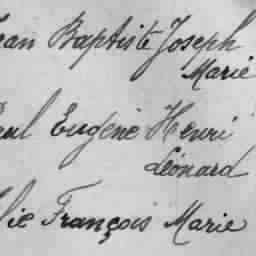 Jean Baptiste Joseph
Marie
Paul Eugène Henri
Léonard
François Marie